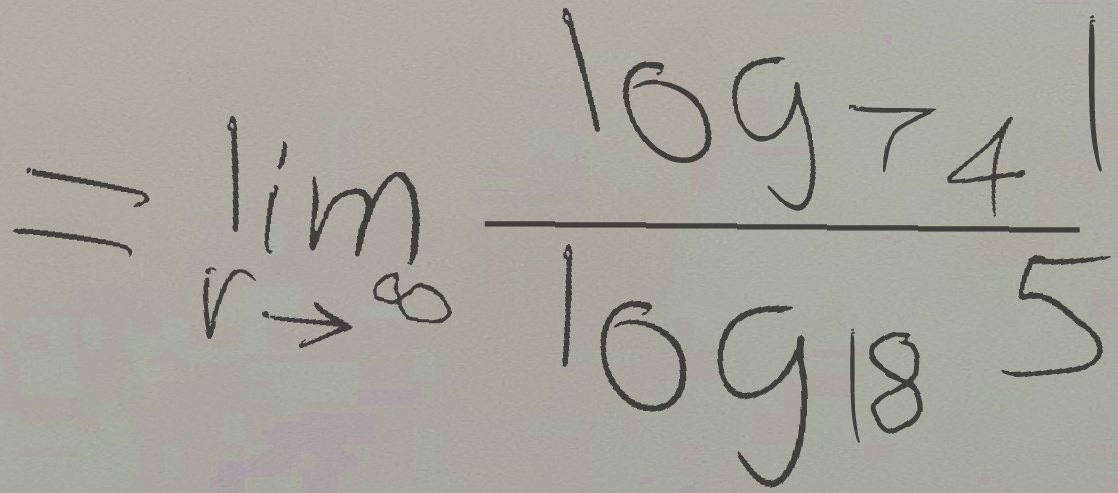 = \lim_{r \to \infty} \frac{\log_{74} 1}{\log_{18} 5}